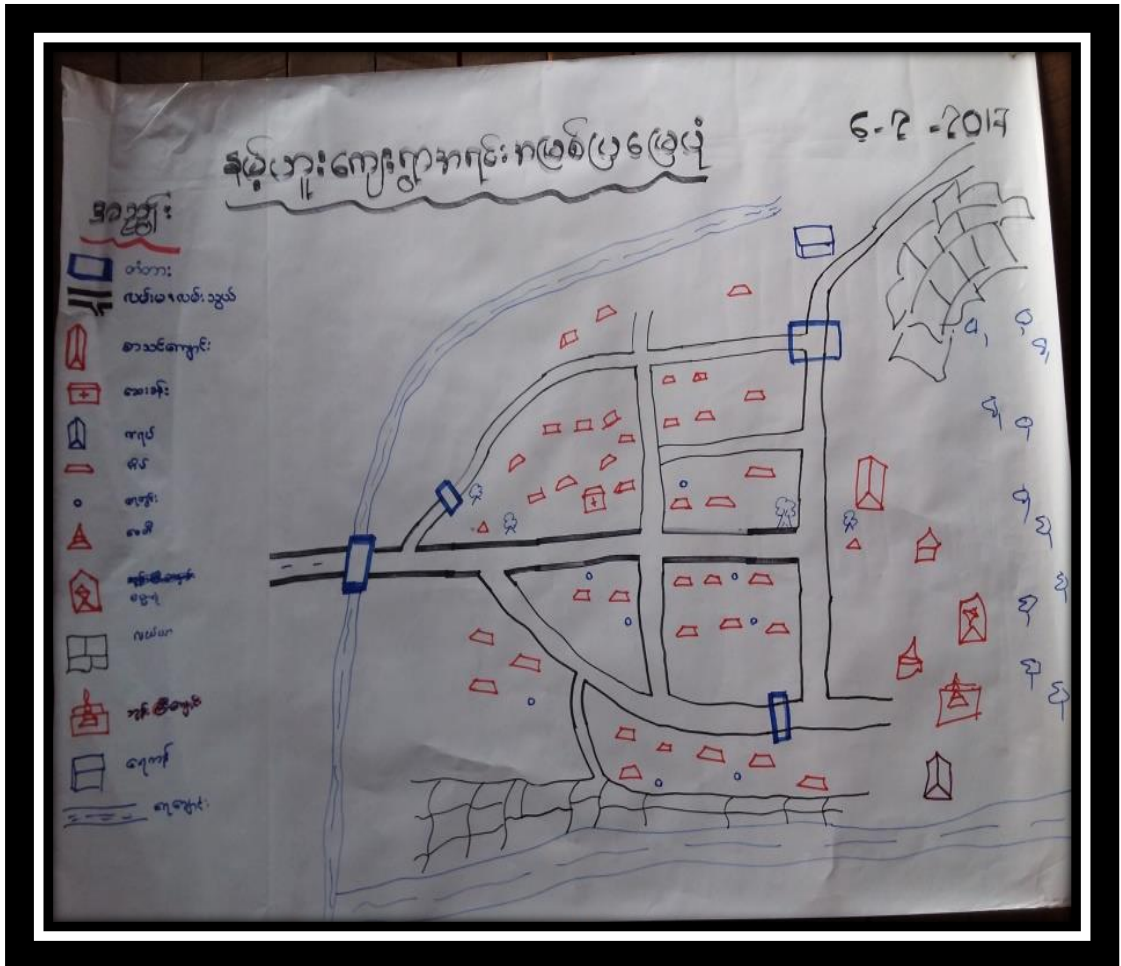 နမ့်ဟူးကျေးရွာအရင်းအမြစ်ပြမြေပုံ
၆-၃-2017
အညွှန်း
တံတား
လမ်းမ၊လမ်းသွယ်
စာသင်ကျောင်း
ဆေးခန်း
ဇရပ်
အိမ်
ရေတွင်း
စေတီ
လယ်ယာ
ဘုန်းကြီးကျောင်း
ရေကန်
ရေချောင်း